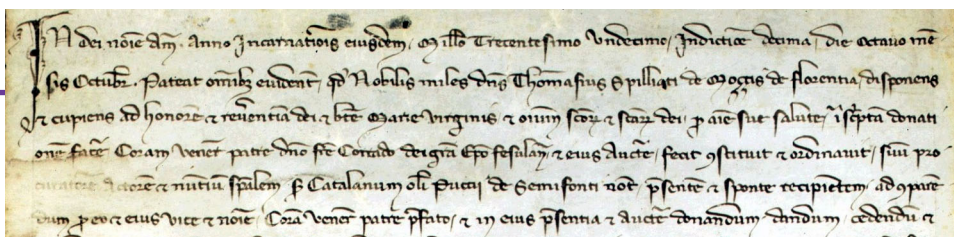 IN dei noīe am̄. Anno Incarnatiōis eiusdem, Millō Trecentesimo undecimo, Indictiōe decima, die octavo mē
sis Octubr̄. Pateat omībȝ evident̄, qđ Nobilis miles dn̄s Thomasius Spilliati de Moçis de florentia, disponens
& cupiens ad honorē & reverentiā dei & bt̄e Marie virginis & oīum sc̄oꝝ & sc̄arꝝ dei, ꝓ aīe sue salute, īscp̄ta donati
onē facē. Coram vener̄ patre dn̄o fr̄e Corrado dei gr̄a Ep̄o fesulan̄ & eius auctē, fecit ꝯstituit & ordinavit, suū pro
curatorē actorē & nuntiū sp̄alem S̄ Catalanum olī Puccii de Semifonti not̄ p̄sentē & sponte recipientem, ad ꝯparē
dum ꝓ eo & eius vice & noīe, Corā vener̄ patre p̄fato, & in eius p̄sentia & auctē donandum dandum, cedendū &